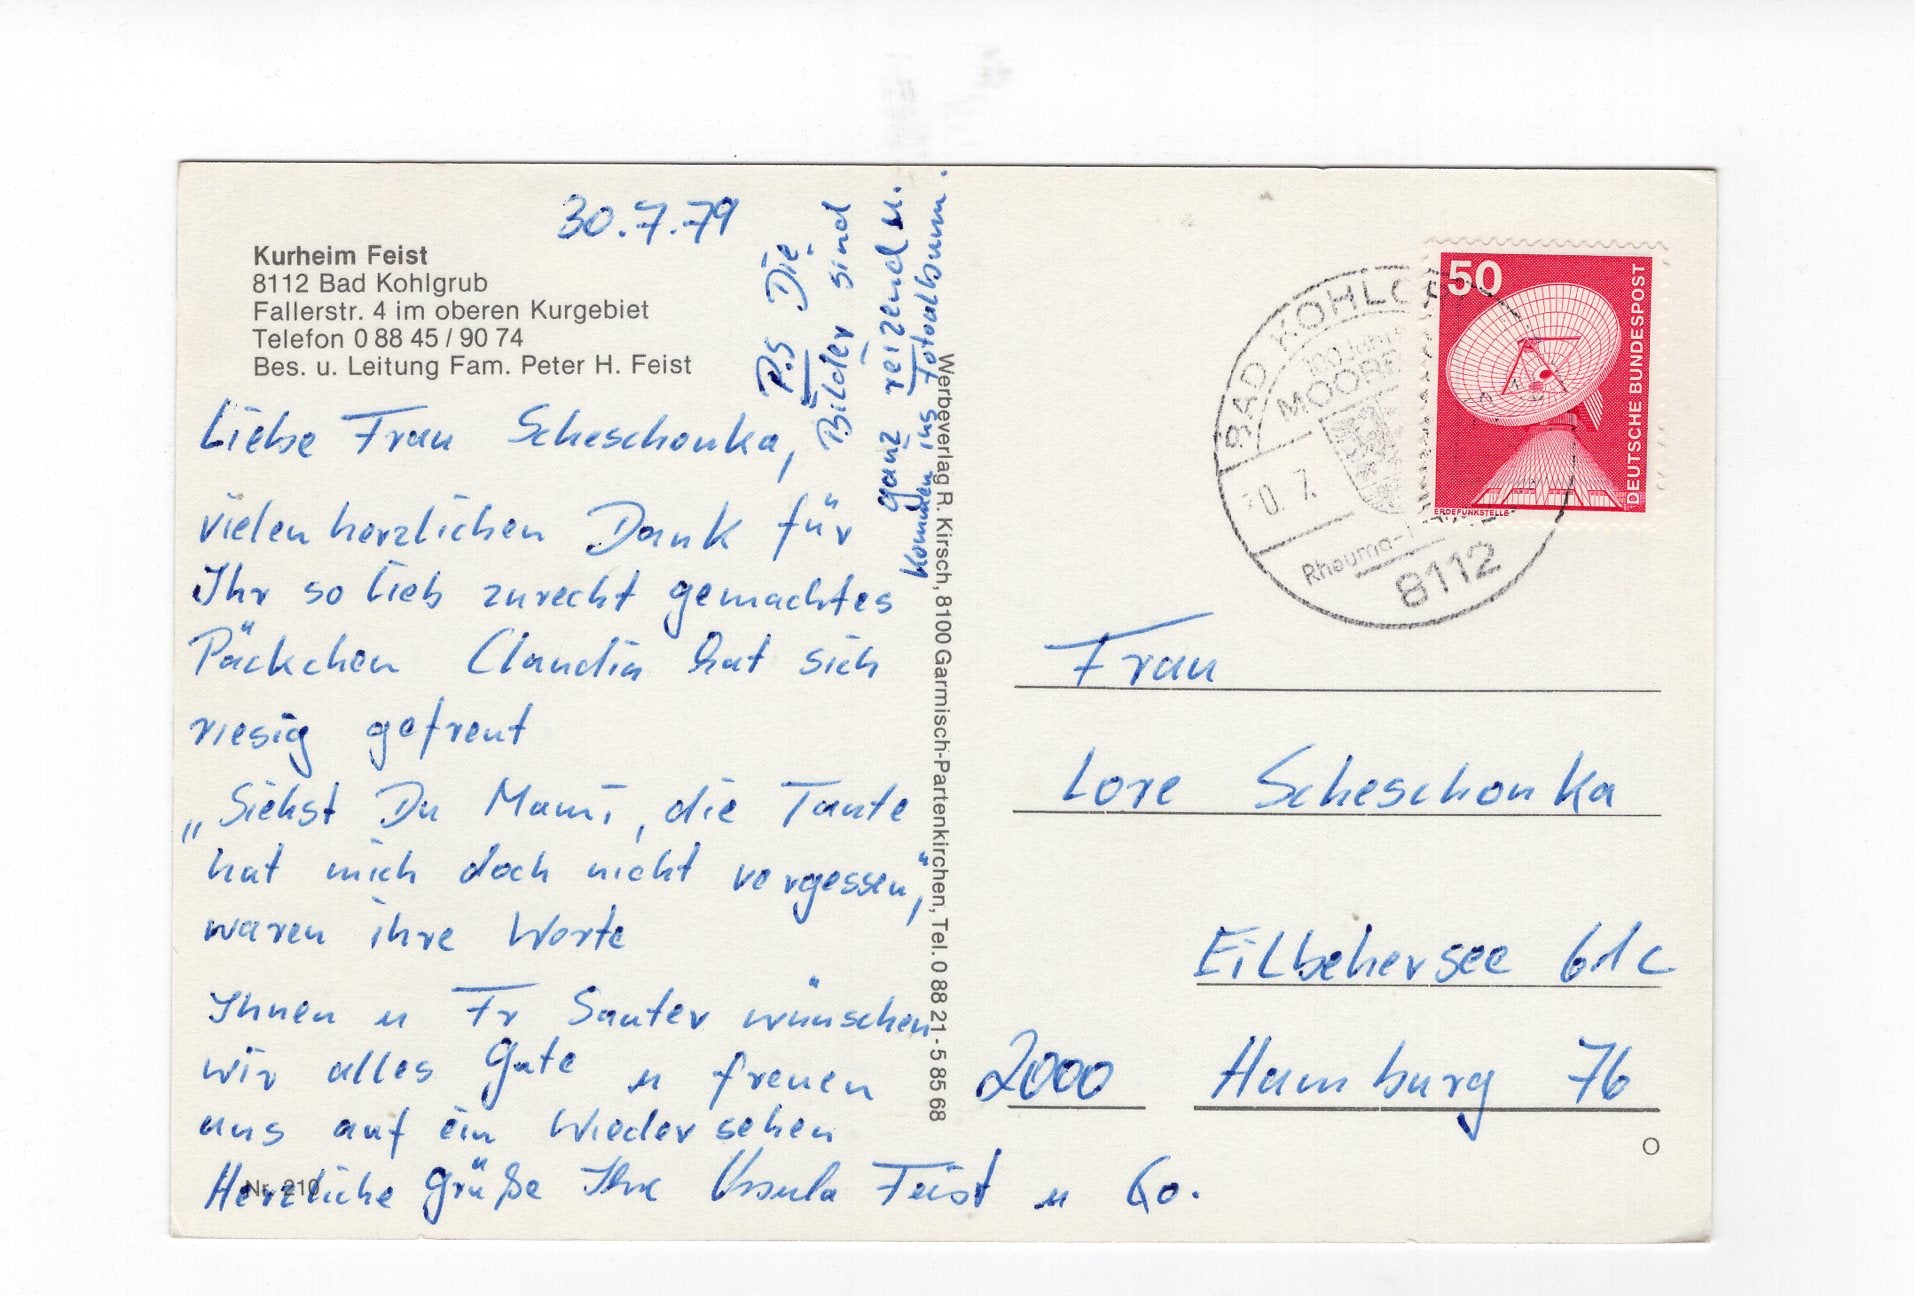 30.7.79
Kurheim Feist
8112 Bad Kohlgrub
Fallerstr. 4 im oberen Kurgebiet
Telefon 0 88 45 / 90 74
Bes. u. Leitung Fam. Peter H. Feist
Liebe Frau Scheschonka,
vielen herzlichen Dank für
Ihr so lieb zurecht gemachtes
Päckchen Claudia hat sich
riesig gefreut
„Siehst Du Mami, die Tante
hat mich doch nicht vergessen,"
waren ihre Worte
Ihnen u Fr Sauter wünschen
wir alles Gute u freuen
uns auf ein Wiedersehen
Herzliche Grüße Ihre Ursula Feist u Co.
Nr. 210
P.S Die
Bilder sind
ganz reizend u.
kommen ins Fotoalbum.
Werbeverlag R. Kirsch, 8100 Garmisch-Partenkirchen, Tel. 0 88 21 - 5 85 68
50
DEUTSCHE BUNDESPOST
ERDEFUNKSTELLE
BAD KOHLG
MOORB
0. 7.
Rheuma-
8112
Frau
Lore Scheschonka
Eilbehersee 61c
2000 Hamburg 76